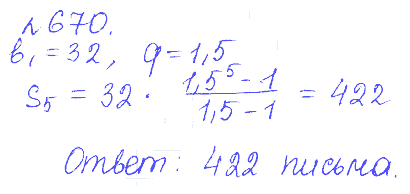 №670.
b₁ = 32, q = 1,5
S₅ = 32 · (1,5⁵ - 1)/(1,5 - 1) = 422
Ответ: 422 письма.